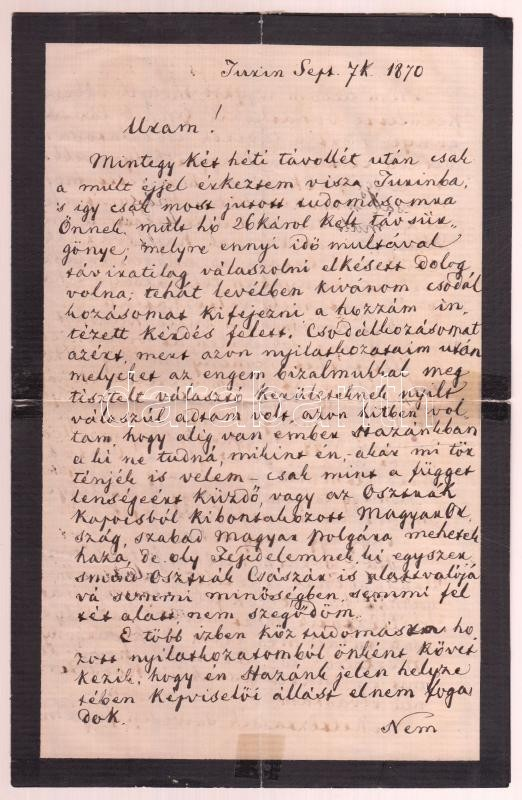 Turin Sept. 7k. 1870
Uram!
Mintegy két héti távollét után csak
a mult éjjel érkeztem vissza Turinba,
's így csak most jutott tudomásomra
Önnek mult hó 26káról kelt távsür-
gönye, melyre ennyi idő multával
táviratilag válaszolni elkésett dolog
volna; tehát levélben kívánom csodál
kozásomat kifejezni a hozzám in-
tézett kérdés felett. Csodálkozásomat
azért, mert azon nyilatkozataim után
melyeket az engem bizalmukkal meg
tisztelt választó kerületeknek nyílt
válaszúl adtam volt, azon hitben vol-
tam, hogy alig van ember Hazánkban
a ki ne tudná, mikint én, akár mi tör
ténjék is velem – csak mint a függet
lenségeért küzdő, vagy az Osztrák
kapocsból kibontakozott Magyar Or
szág, szabad Magyar polgára mehetek
haza, de oly Fejedelemnek, ki egyszer
smind Osztrák Császár is alattvalójá
vá semmi minőségben, semmi fel
tét alatt, nem szegődöm.
E több ízben köztudomásra ho
zott nyilatkozatomból önként követ
kezik, hogy én Hazánk jelen helyze
tében képviselői állást el nem foga
dok.
Nem
darabanth